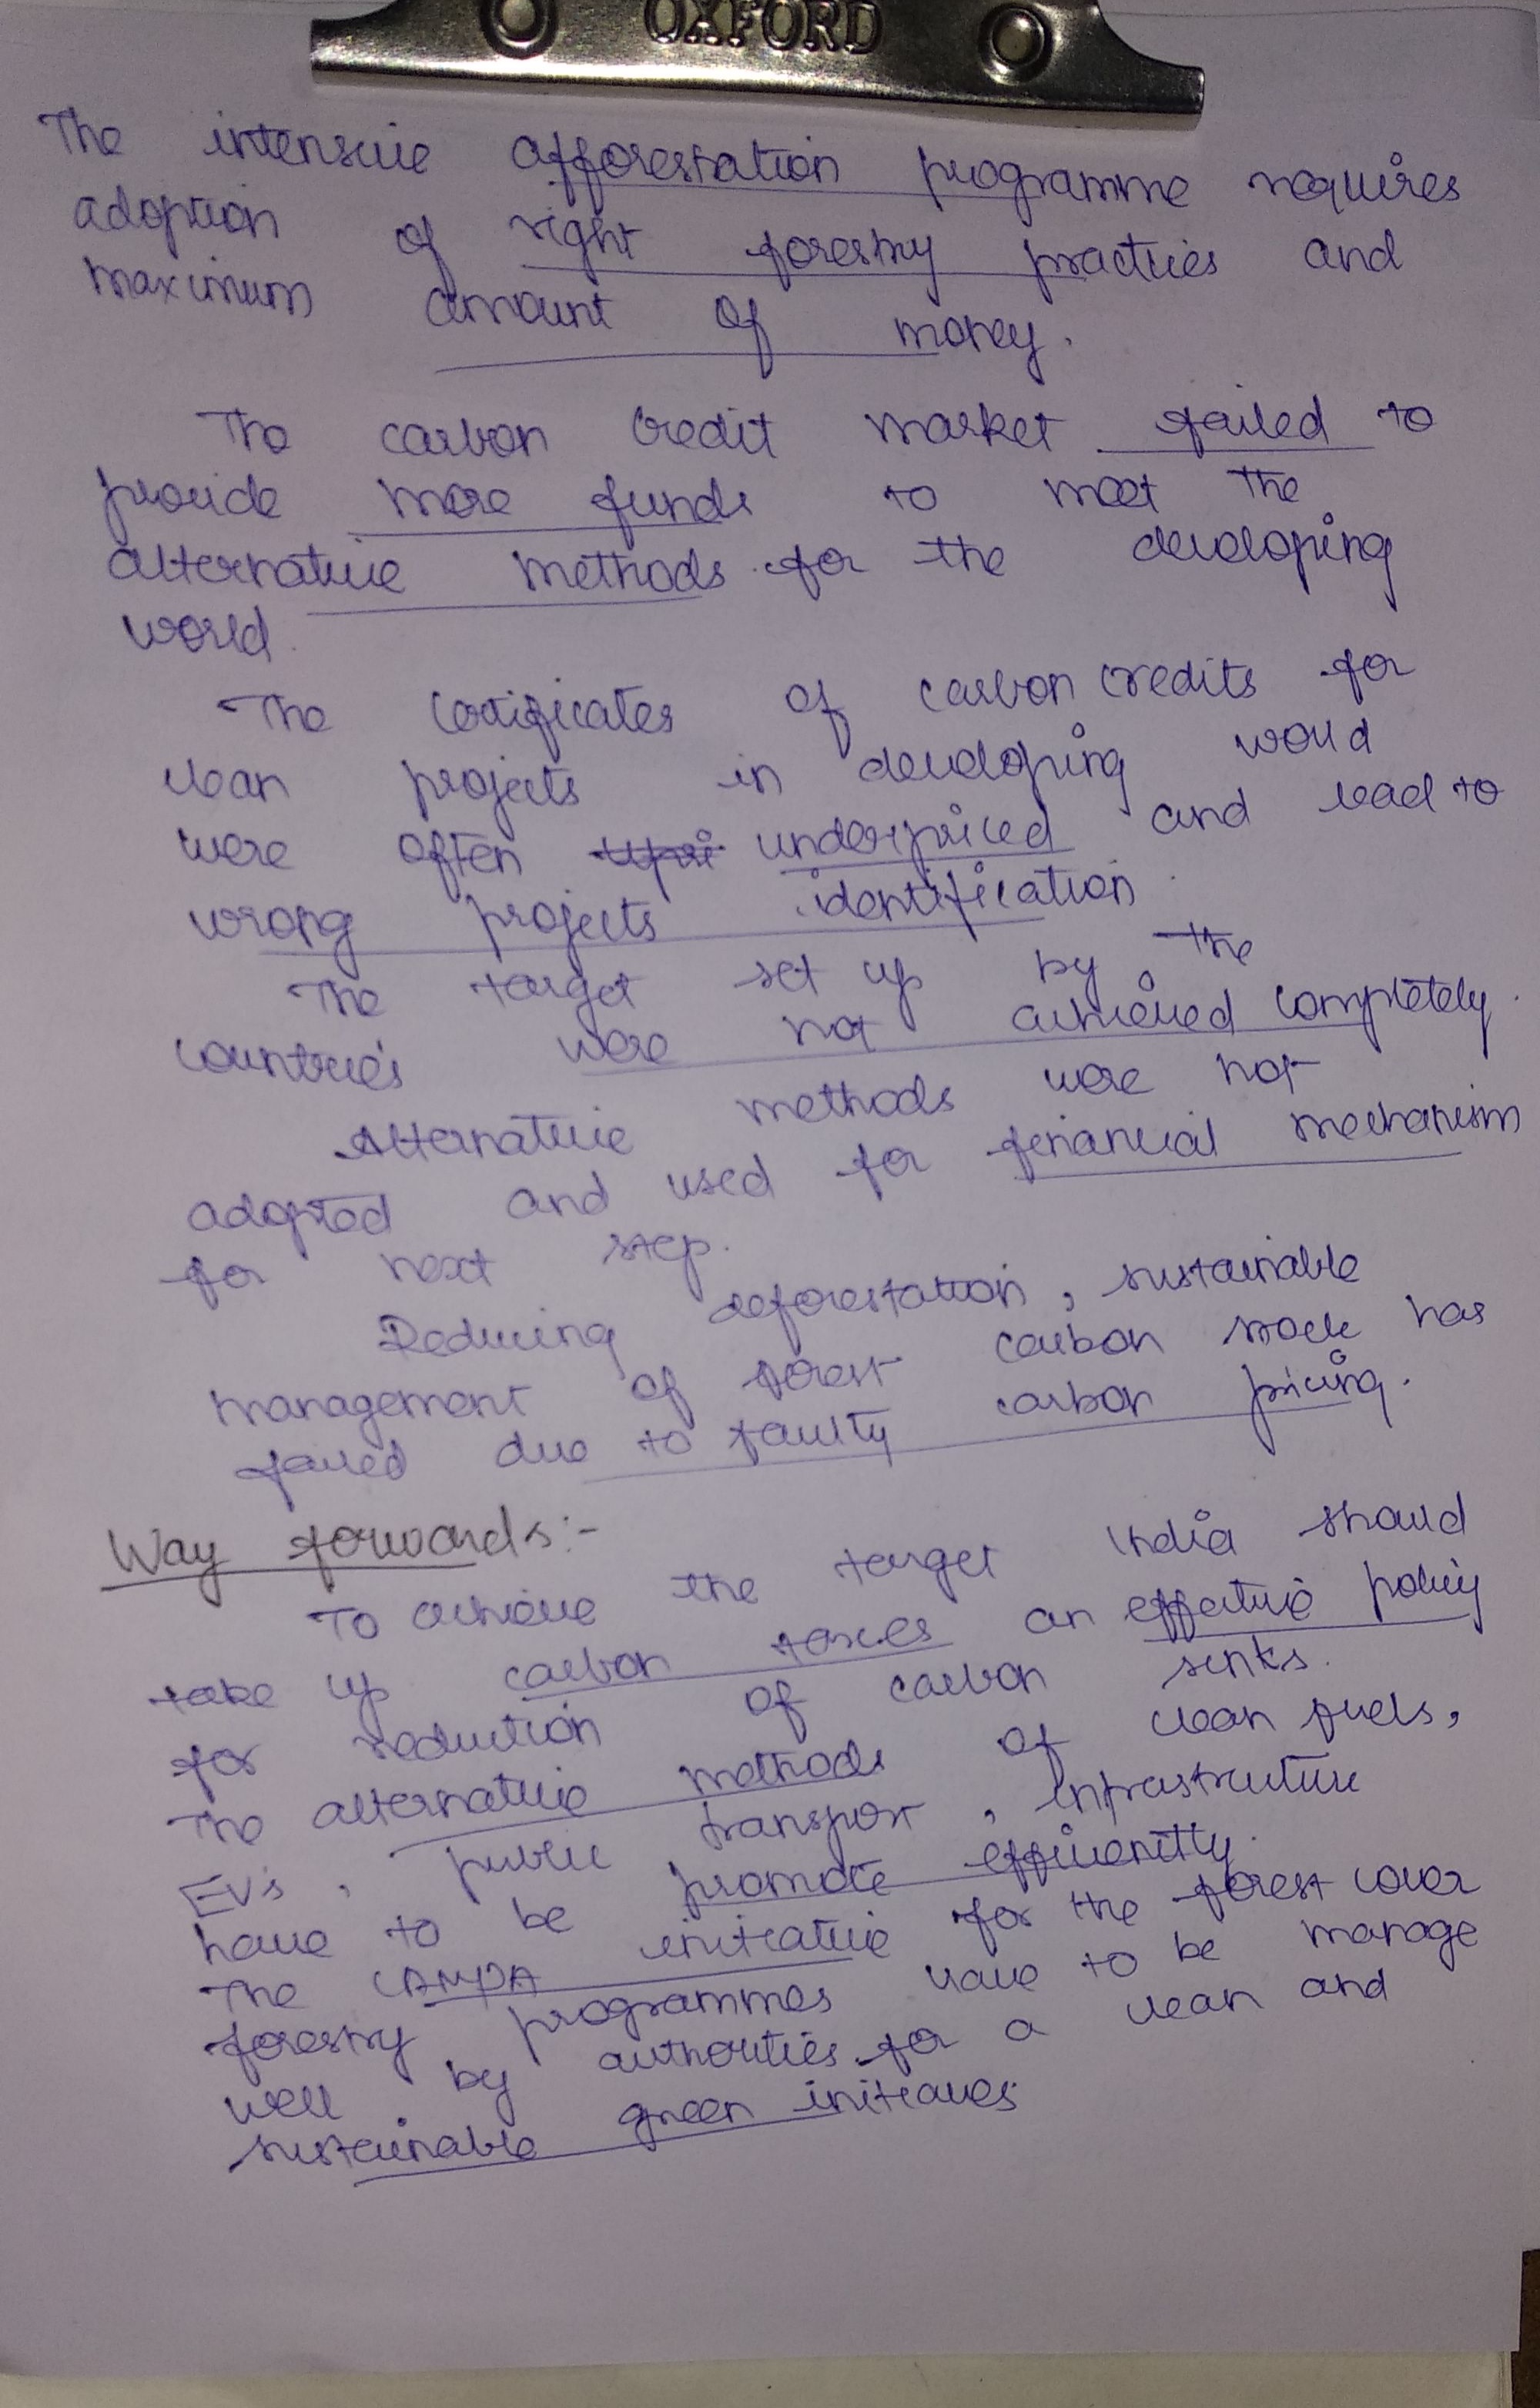 OXFORD
The intensive afforestation programme requires
adoption of right forestry practices and
maximum amount of money.
The carbon credit market failed to
provide more funds to meet the
alternative methods for the developing
world.
The certificates of carbon credits for
clean projects in developing world
were often underpriced and lead to
wrong projects identification.
The target set up by the
countries were not achieved completely.
Alternative methods were not
adopted and used for financial mechanism
for next step.
Reducing deforestation, sustainable
management of forest carbon stock has
failed due to faulty carbon pricing.
Way forwards:-
To achieve the target India should
take up carbon taxes an effective policy
for reduction of carbon sinks.
The alternative methods of clean fuels,
EV's, public transport, infrastructure
have to be promote efficiently.
The CAMPA initiative for the forest cover
forestry programmes have to be manage
well by authorities for a clean and
sustainable green initiaves